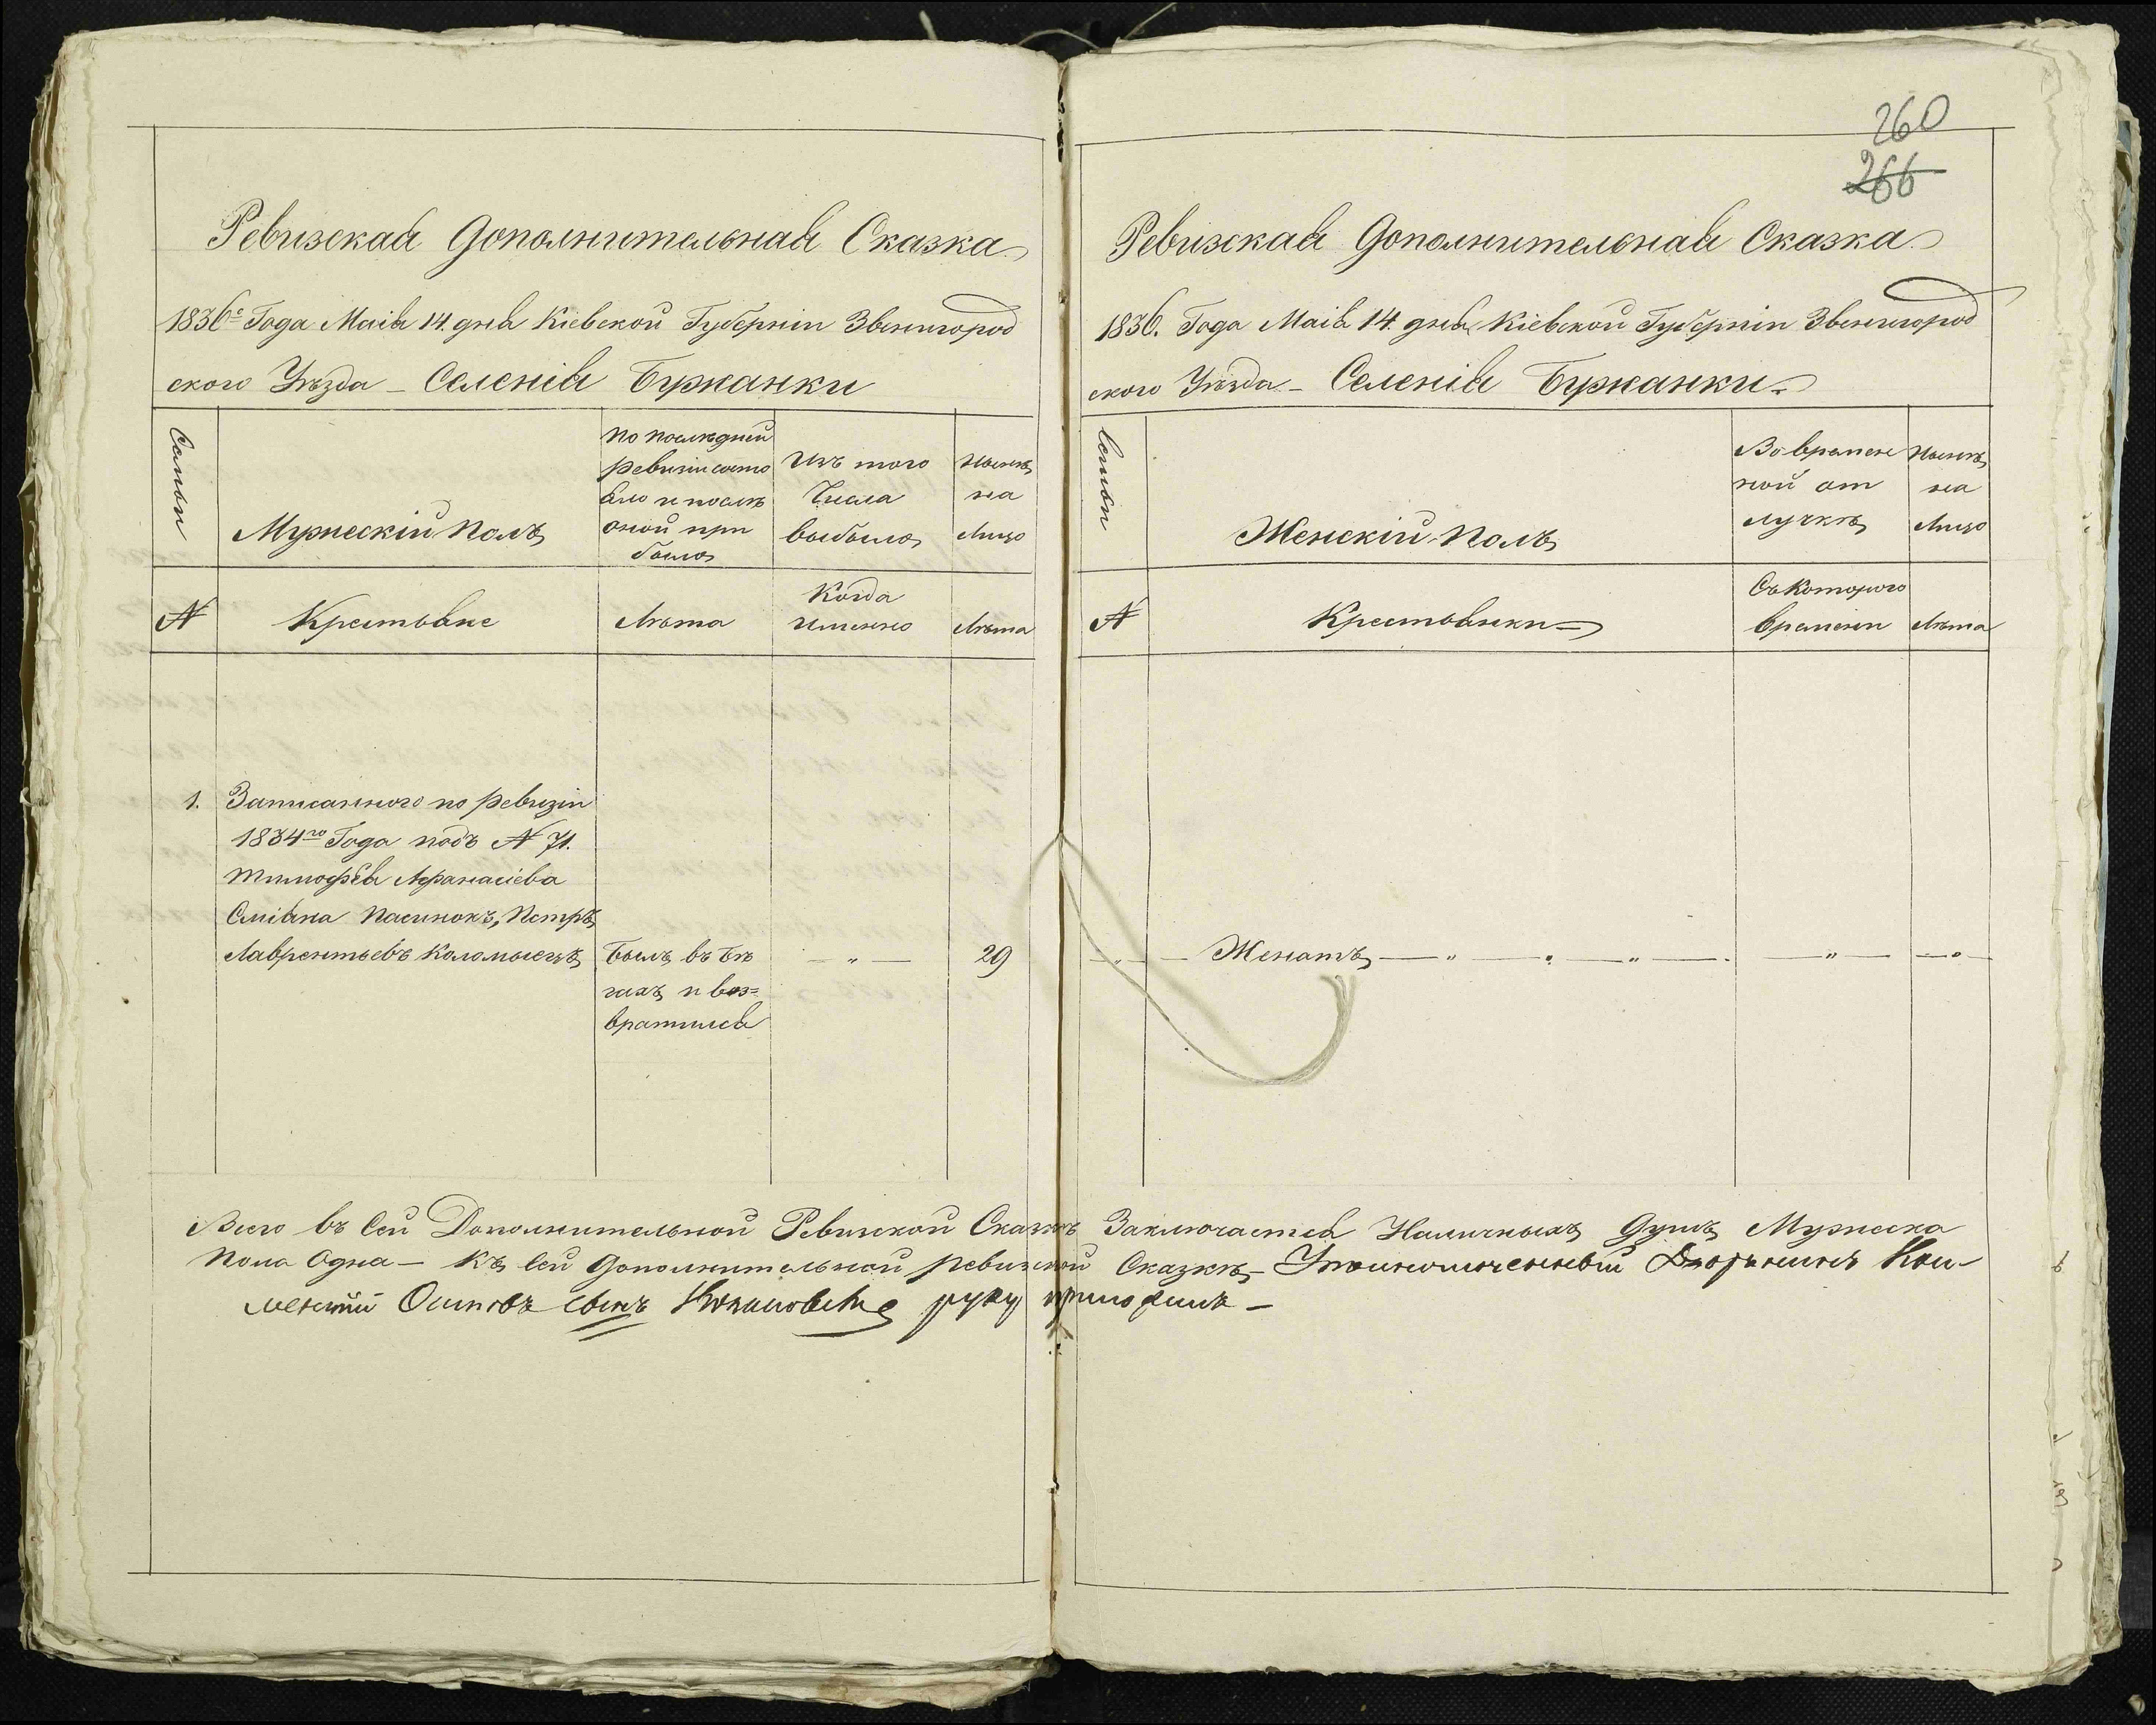 260
266
Ревизская Дополнительная Сказка
1836го Года Маія 14. дня Кіевской Губерніи Звенигород
ского Уѣзда - Селенія Бужанки
Семьи
Мужескій Полъ
По последней
ревизіи состо
яло и послѣ
оной при
было
Изъ того
Числа
выбыло
Нынѣ
на
Лицо
№
Крестьяне
Лѣта
Когда
Именно
Лѣта
1. Записанного по ревизіи
1834го Года подъ № 71.
Тимофея Афанасіева
пасинокъ, Петръ
Лаврентьевъ Коломыецъ
Былъ въ бѣ
гахъ и воз=
вратился
— " —
29
Ревизская Дополнительная Сказка
1836. Года Маія 14. дня Кіевской Губерніи Звенигород
ского Уѣзда - Селенія Бужанки.
Семьи
Женскій Полъ
Во времен
ной от
лучкѣ
Нынѣ
на
Лицо
№
Крестьянки
Съ Которого
времени
Лѣта
— " — Женатъ — " — " — " — " — " —
Всего въ сей Дополнительной Ревизской Сказкѣ Заключается Наличныхъ Душъ Мужеска
Пола Одна — Къ сей Дополнительной ревизской Сказкѣ - Уполномоченный Дворянинъ Кли-
ментій Осиповъ сынъ руку приложилъ —